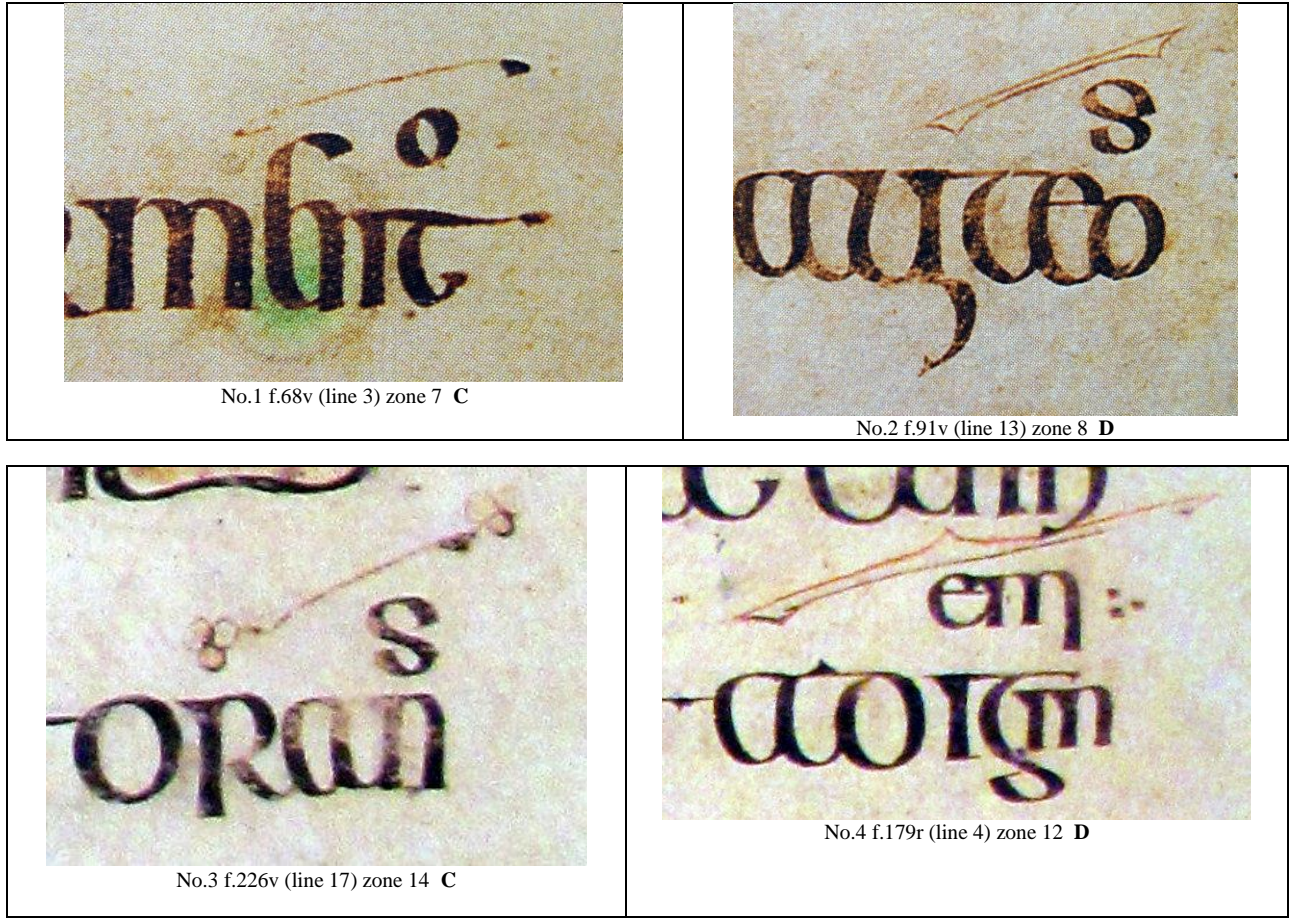 o
mbit
No.1 f.68v (line 3) zone 7 C
s
No.2 f.91v (line 13) zone 8 D
s
oran
No.3 f.226v (line 17) zone 14 C
em
No.4 f.179r (line 4) zone 12 D